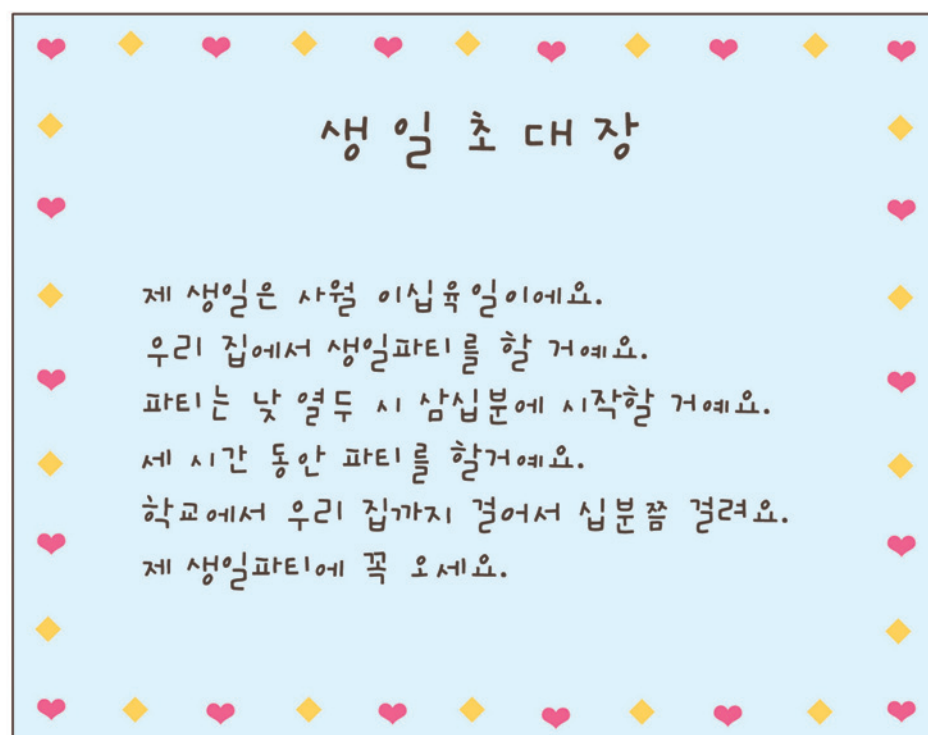 생일초대장
제 생일은 사월 이십육일이에요.
우리 집에서 생일파티를 할 거예요.
파티는 낮 열두 시 삼십분에 시작할 거예요.
세 시간 동안 파티를 할거예요.
학교에서 우리 집까지 걸어서 십분쯤 걸려요.
제 생일파티에 꼭 오세요.